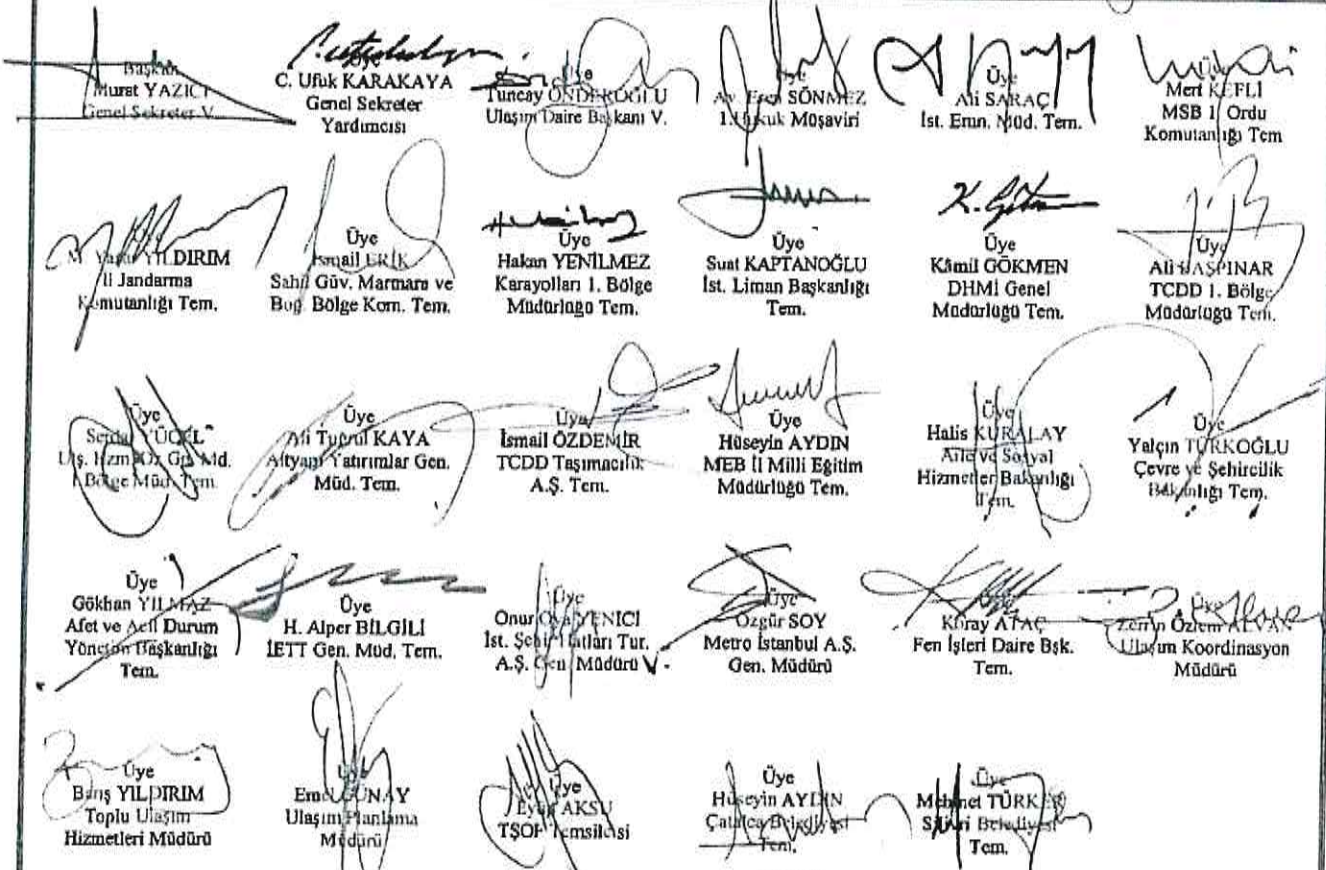 Başkan
Murat YAZICI
Genel Sekreter V.
C. Ufuk KARAKAYA
Genel Sekreter
Yardımcısı
Üye
Tuncay ÖNDEROĞLU
Ulaşım Daire Başkanı V.
Üye
Av. Eren SÖNMEZ
1. Hukuk Müşaviri
Üye
Ali SARAÇ
İst. Emn. Müd. Tem.
Üye
Mert KEFLİ
MSB 1. Ordu
Komutanlığı Tem
YILDIRIM
İl Jandarma
Komutanlığı Tem.
Üye
İsmail ERİK
Sahil Güv. Marmara ve
Boğ. Bölge Kom. Tem.
Üye
Hakan YENİLMEZ
Karayolları 1. Bölge
Müdürlüğü Tem.
Üye
Suat KAPTANOĞLU
İst. Liman Başkanlığı
Tem.
Üye
Kâmil GÖKMEN
DHMİ Genel
Müdürlüğü Tem.
Üye
Ali BAŞPINAR
TCDD 1. Bölge
Müdürlüğü Tem.
Üye
Serdar YÜCEL
Ulş. Hzm. Dz. Gn. Md.
1. Bölge Müd. Tem.
Üye
Ali Tuğrul KAYA
Altyapı Yatırımlar Gen.
Müd. Tem.
Üye
İsmail ÖZDEMİR
TCDD Taşımacılık
A.Ş. Tem.
Üye
Hüseyin AYDIN
MEB İl Milli Eğitim
Müdürlüğü Tem.
Üye
Halis KURALAY
Aile ve Sosyal
Hizmetler Bakanlığı
Tem.
Üye
Yalçın TÜRKOĞLU
Çevre ve Şehircilik
Bakanlığı Tem.
Üye
Gökhan YILMAZ
Afet ve Acil Durum
Yönetim Başkanlığı
Tem.
Üye
H. Alper BİLGİLİ
İETT Gen. Müd. Tem.
Üye
Onur YENİCİ
İst. Şehir Hatları Tur.
A.Ş. Gen. Müdürü V.
Üye
Özgür SOY
Metro İstanbul A.Ş.
Gen. Müdürü
Koray ATAÇ
Fen İşleri Daire Bşk.
Tem.
Üye
Zerrin Özlem
Ulaşım Koordinasyon
Müdürü
Üye
Barış YILDIRIM
Toplu Ulaşım
Hizmetleri Müdürü
Üye
Emel GÜNAY
Ulaşım Planlama
Müdürü
Üye
Eyüp AKSU
TŞOF Temsilcisi
Üye
Hüseyin AYDIN
Çatalca Belediyesi
Tem.
Üye
Mehmet TÜRKER
Silivri Belediyesi
Tem.